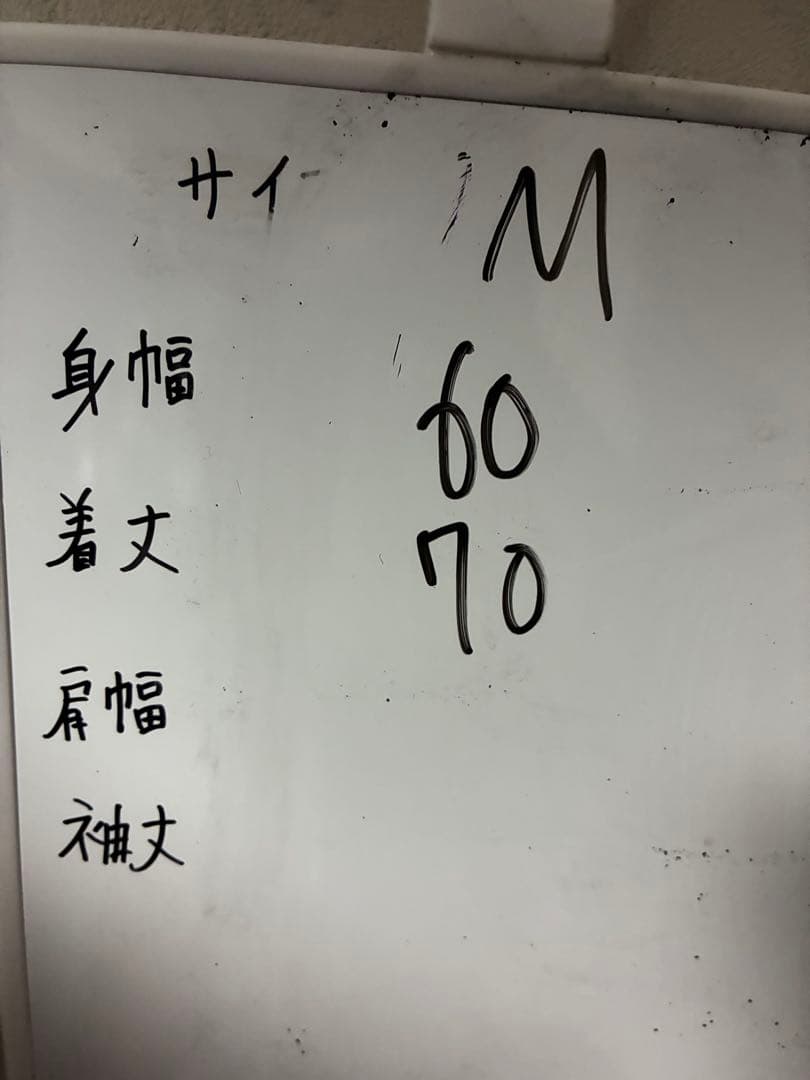 サイ M
身幅 60
着丈 70
肩幅
袖丈